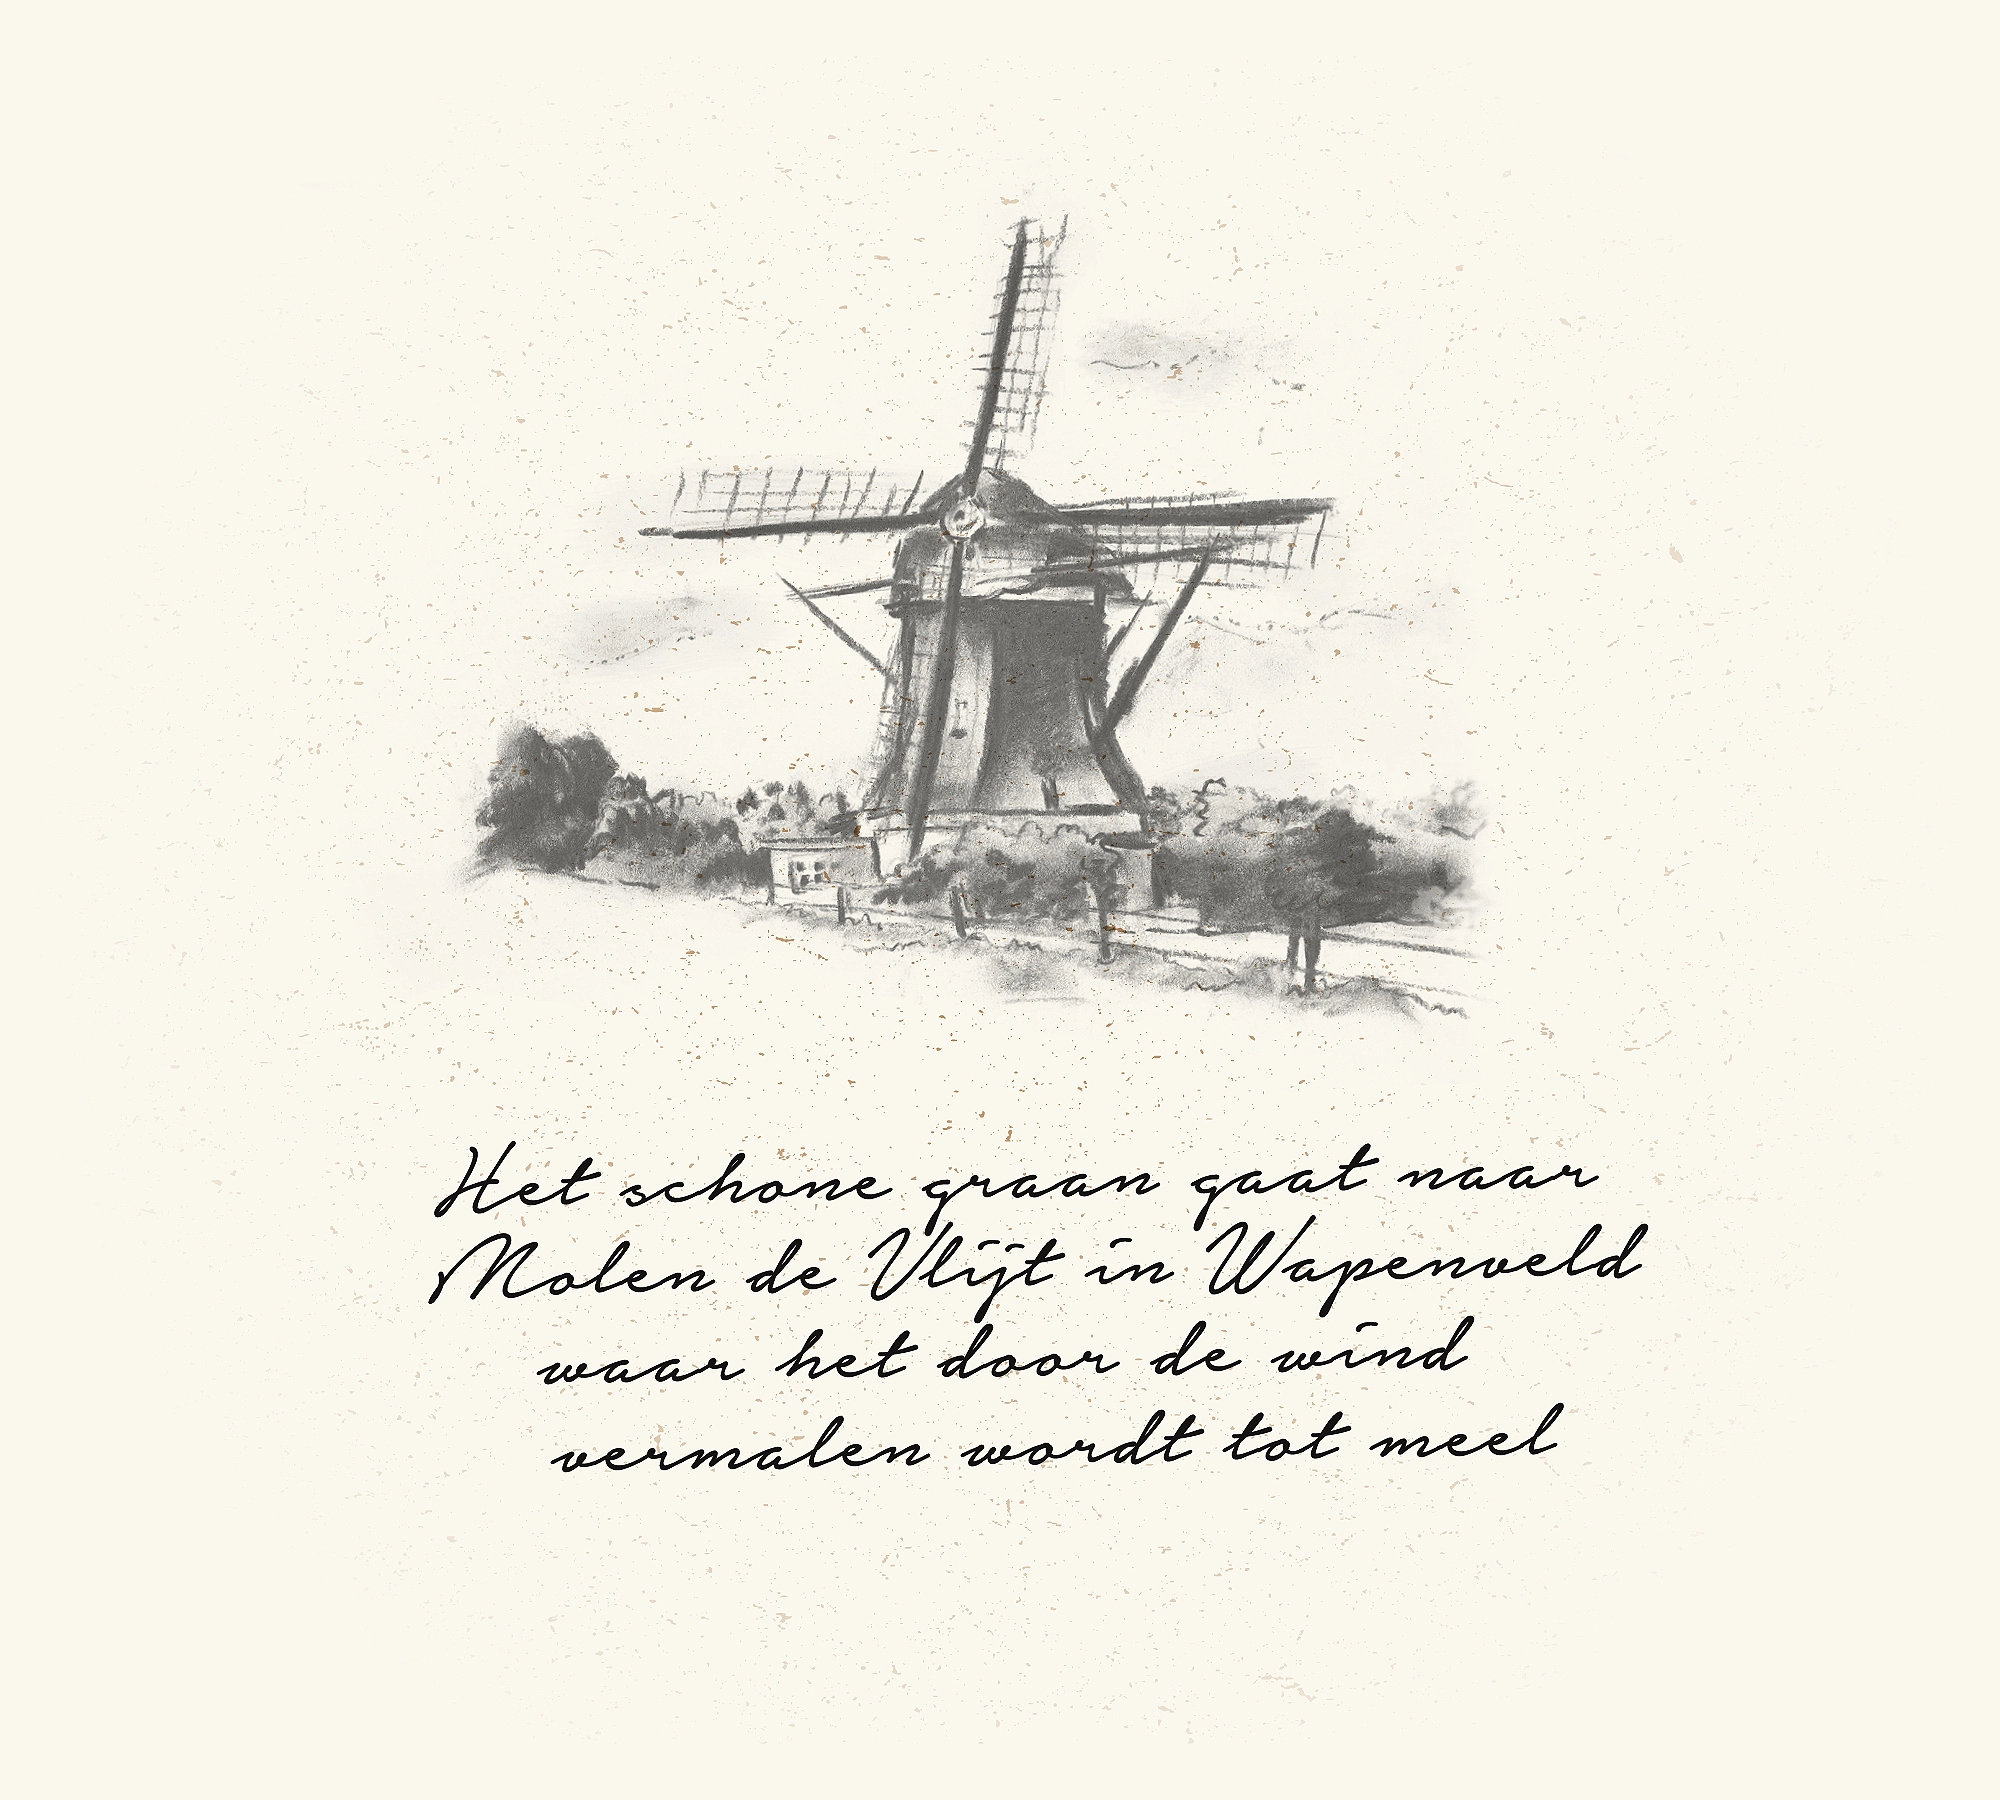 Het schone graan gaat naar
Molen de Vlijt in Wapenveld
waar het door de wind
vermalen wordt tot meel